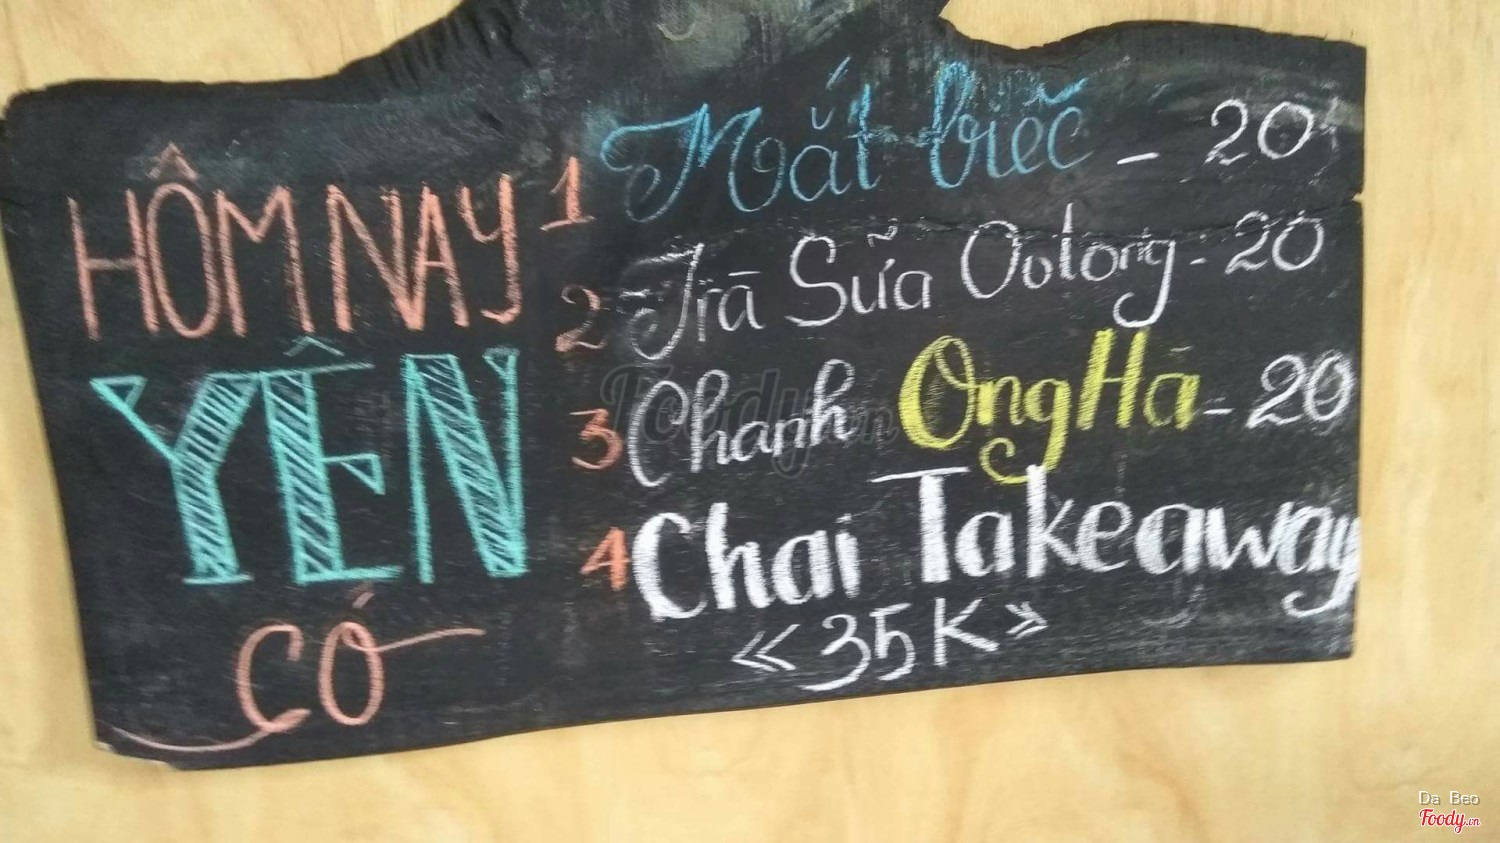 HÔM NAY
YÊN
CÓ
1 Mắt biếc - 20
2 Trà Sữa Oolong - 20
3 Chanh Ong Hà - 20
4 Chai Takeaway
« 35K »
Foody.vn
Da Beo
Foody.vn